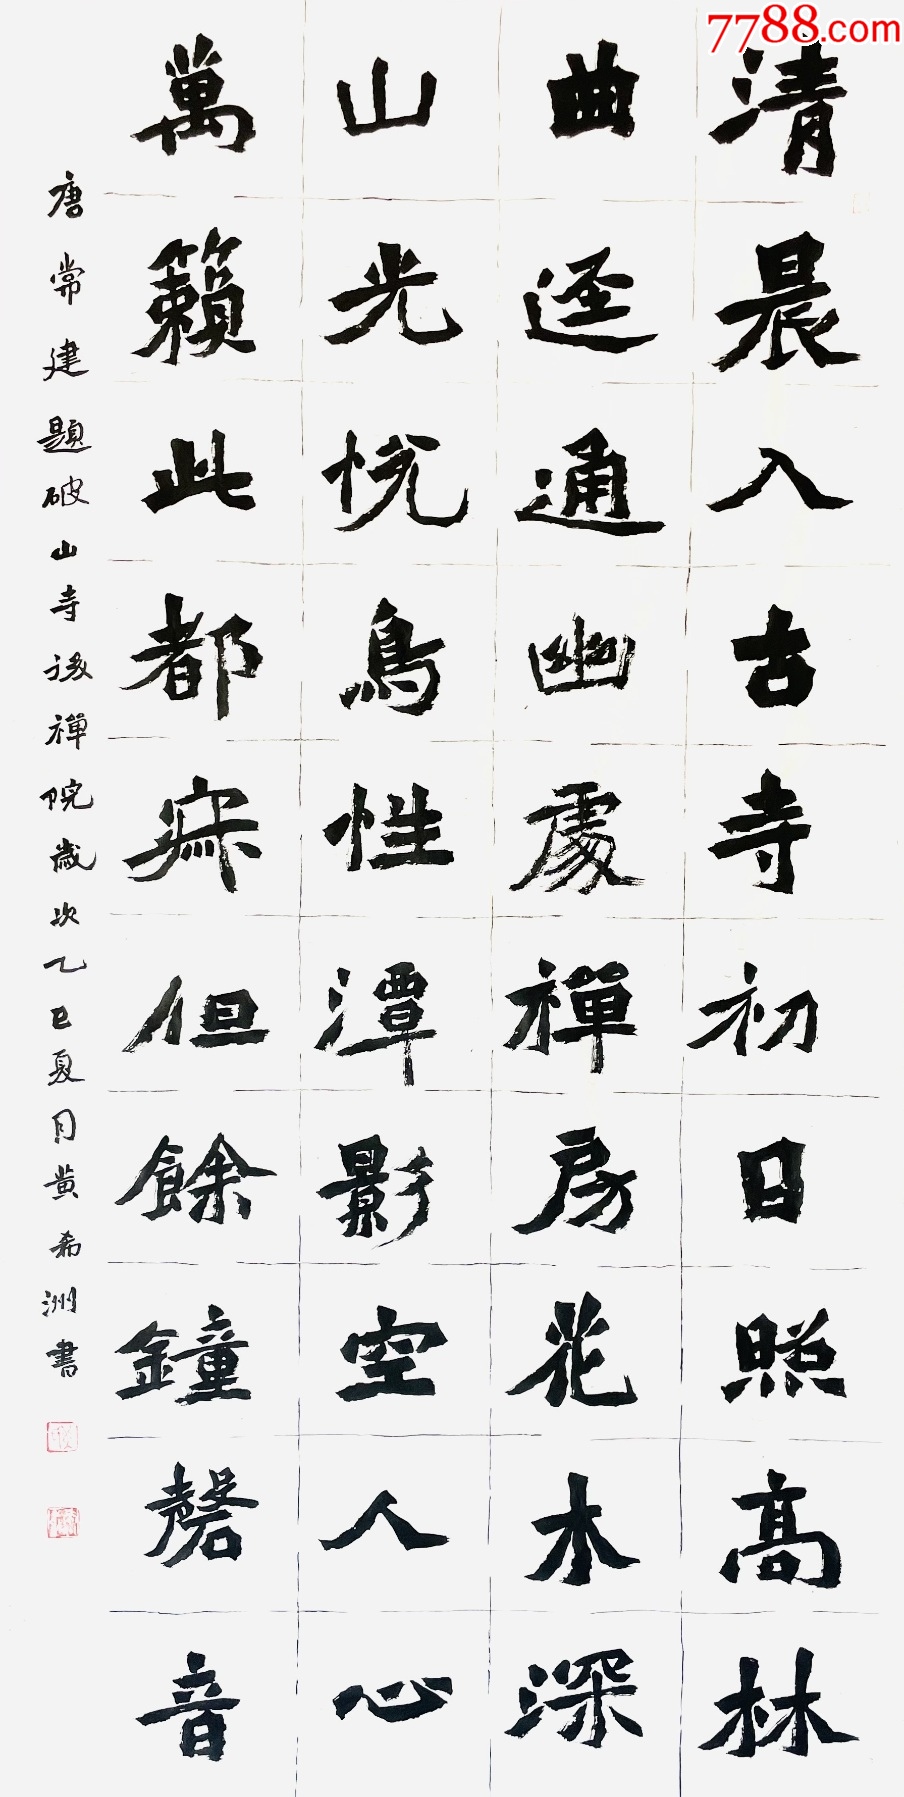 7788.com
清晨入古寺初日照高林
曲迳通幽處禪房花木深
山光悅鳥性潭影空人心
萬籟此都寂但餘鐘磬音
唐常建題破山寺後禪院歲次乙巳夏月黃希洲書